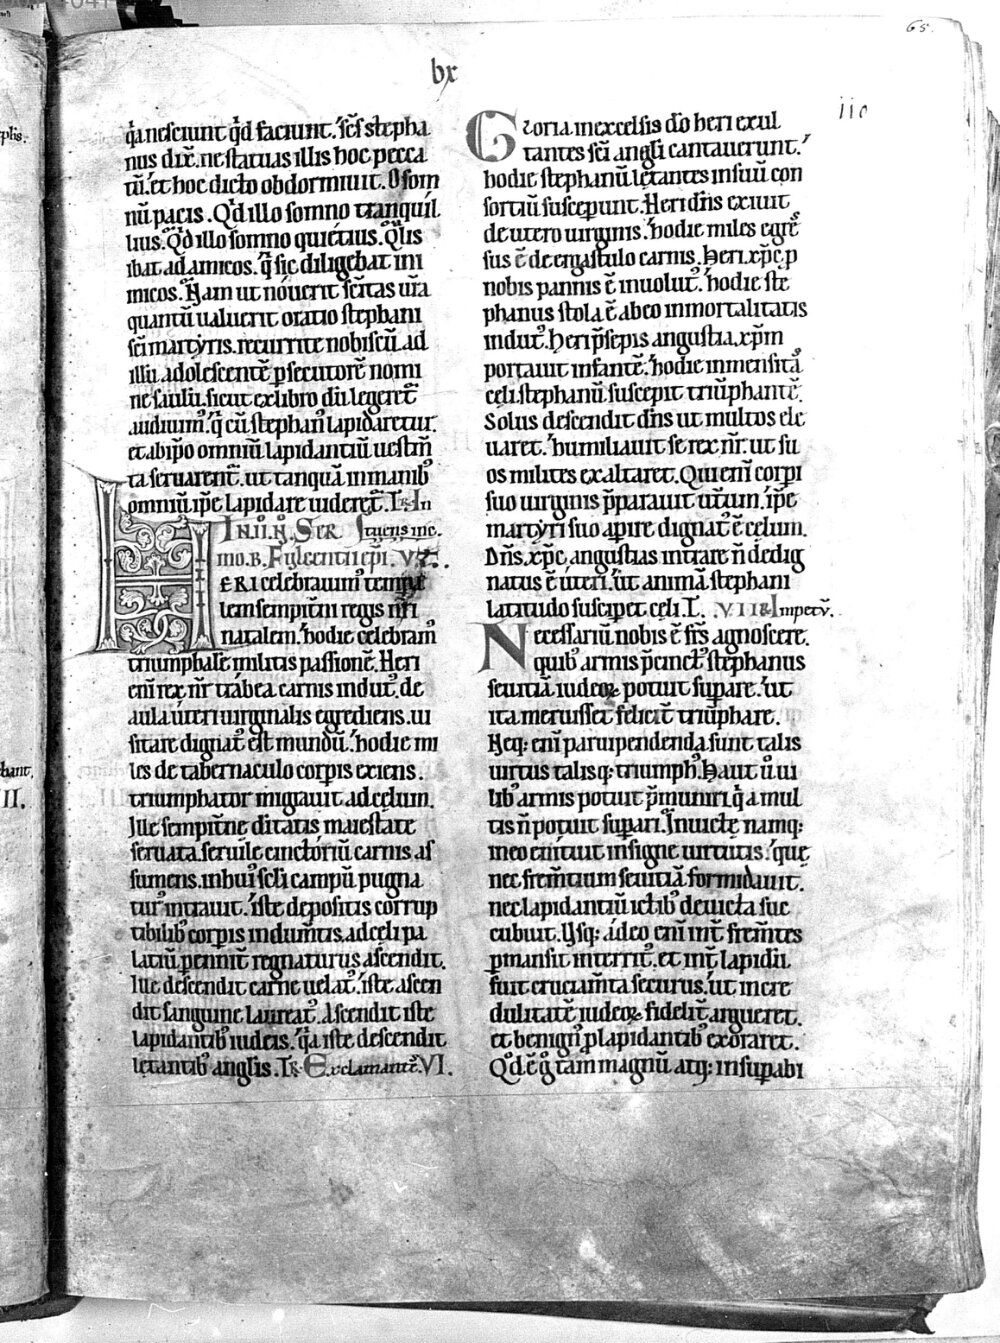 65.
lx
110
q̄a nesciunt q̄d faciunt. Sc̄s stepha
nus dix̄. ne statuas illis hoc pecca
tū. Et hoc dicto obdormiuit. O som
nū pacis. Qd̄ illo somno tranquil
lius. Qd̄ illo somno quietius. Qͣlis
ibat ad amicos. q̄ sic diligebat ini
micos. Nam ut nouerit sc̄itas ur̄a
quantū ualuerit oratio stephani
sc̄i martyris. recurrite nobiscū. ad
illū adolescentē ꝑsecutorē nomi
ne saulū. sicut ex libro dū legeret᷑
audiuimꝰ. q̄ cū stephanꝰ lapidaretur.
et ab ip̄o omniū lapidantiū uestm̄
ta seruarent᷑. ut tanquā in manibꝰ
omniū. ip̄e lapidare uideret᷑. R̄. In
IN. II. N̊. SER
mo. B. Fulgentii ep̄i. V.
HERI celebrauimꝰ tempa
lem sempit̄ni regis nr̄i
natalem. hodie celebram̄
triumphalē militis passionē. Heri
eni᷑ rex nr̄ trabea carnis indutꝰ. de
aula uteri uirginalis egrediens. ui
sitare dignatꝰ est mundū. hodie mi
les de tabernaculo corꝑis exiens.
triumphator migrauit ad cęlum.
Ille sempit̄ne diuitatis maiestate
seruata. seruile cinctoriū carnis as
sumens. in huiꝰ sc̄li campū pugna
turꝰ intrauit. Iste depositis corrup
tibilibꝰ corꝑis indum̄tis. ad cęli pa
latiū. ꝑennit̄ regnaturus ascendit.
Ille descendit carne uelatꝰ. iste ascen
dit sanguine laureatꝰ. Ascendit iste
lapidantibꝰ iudeis. q̄a iste descendit
lętantibꝰ anglis. R̄. Exclamantē. VI.
Gloria in excelsis dō heri exul
tantes sc̄i angli cantauerunt.
hodie stephanū lętantes in suū con
sortiū susceꝑunt. Heri dn̄s exiuit
de utero uirginis. hodie miles egres
sus ē de ergastulo carnis. Heri xp̄c p̄
nobis pannis ē inuolutꝰ. hodie ste
phanus stola ē ab eo inmortalitatis
indutꝰ. Heri p̄sepis angustia. xp̄m
portauit infantē. hodie inmensitas
cęli stephanū suscepit triūphantē.
Solus descendit dn̄s ut multos ele
uaret. humiliauit se rex nr̄. ut su
os milites exaltaret. Qui eni᷑ corꝑi
suo uirginis p̄parauit uterum. ip̄e
martyri suo aꝑire dignatꝰ ē cęlum.
Dn̄s xp̄c, angustias intrare n̄ dedig
natus ē uteri. ut animā stephani
latitudo susciꝑet cęli. R̄. VII R̄ Impetū.
Necessariū nobis ē frs̄ agnoscere.
quibꝰ armis p̄cinctꝰ stephanus
seuitiā iudeoꝝ potuit suꝑare. ut
ita meruisset felicit̄ triūphare.
Neq: eni᷑ paruipendenda sunt talis
uirtus talisq: triumphꝰ. Haut ū ui
libꝰ armis potuit p̄muniri. q̄ a mul
tis n̄ potuit suꝑari. Inuictę namq:
in eo enituit insigne uirtutis. que
nec frem̄tium seuitiā formidauit.
nec lapidantiū ictibꝰ deuicta suc
cubuit. Usq: adeo eni᷑ int̄ frem̄tes
ꝑmansit int̄ritꝰ. et int̄ lapidū
fuit cruciam̄ta securus. ut incre
dulitatē iudeoꝝ fidelit̄ argueret.
et benignꝰ ꝑ lapidantibꝰ exoraret.
Qd̄ ē g̊ tam magnū atq: insuꝑabi